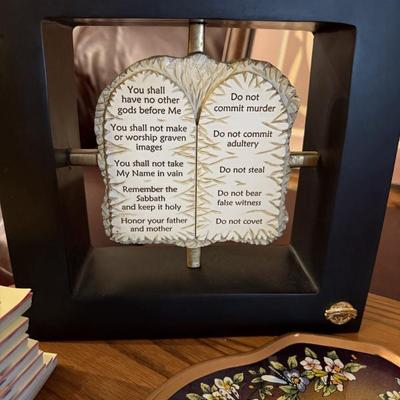 You shall
have no other
gods before Me
You shall not make
or worship graven
images
You shall not take
My Name in vain
Remember the
Sabbath
and keep it holy
Honor your father
and mother
Do not
commit murder
Do not commit
adultery
Do not steal
Do not bear
false witness
Do not covet